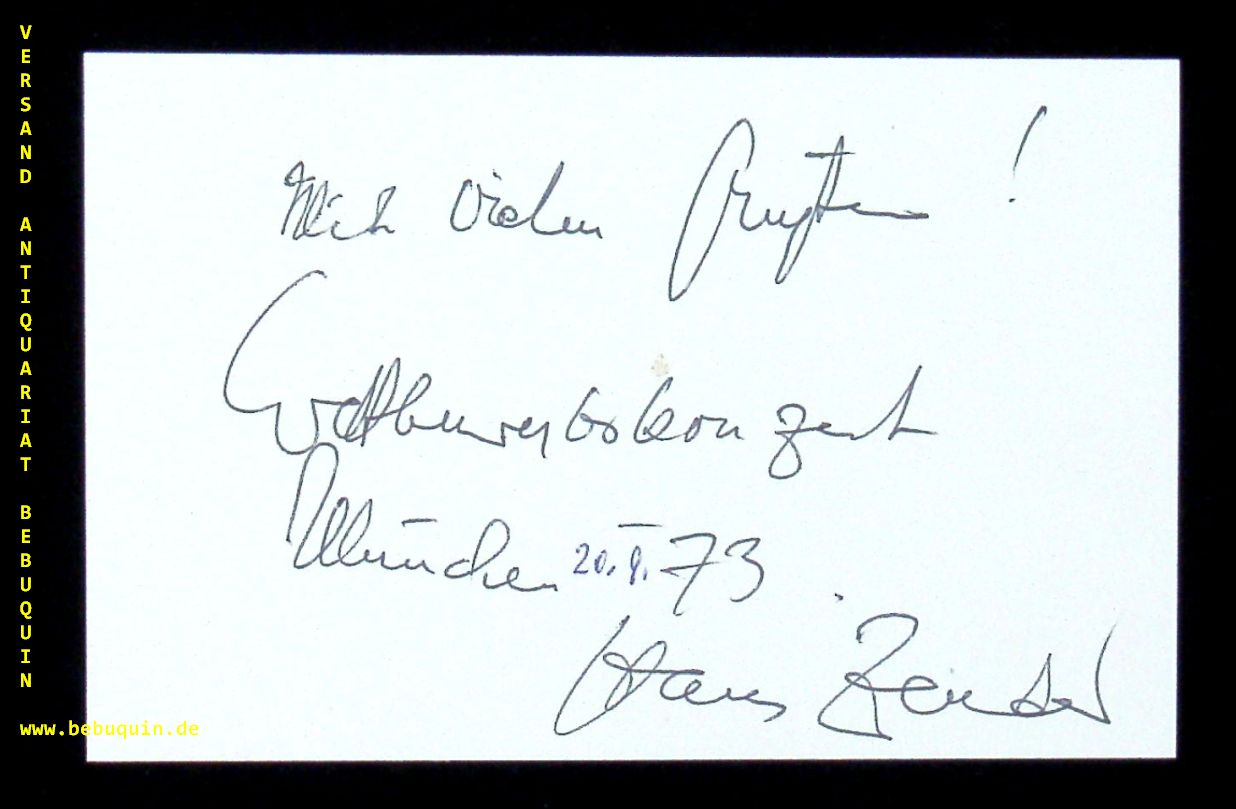 VERSAND ANTIQUARIAT BEBUQUIN
www.bebuquin.de
Mit vielen Grüßen !
Wettbewerbskonzert
München 20.9.73
Hans Zender